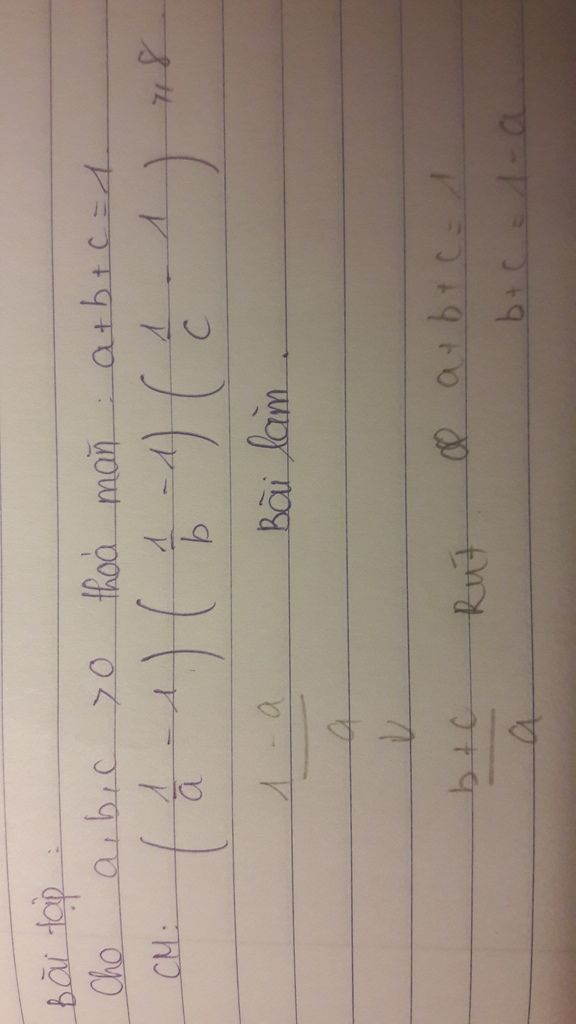 Bài tập :
Cho a, b, c > 0 thỏa mãn : a + b + c = 1
CM: ( 1/a - 1 ) ( 1/b - 1 ) ( 1/c - 1 ) ≥ 8
Bài làm .
1 - a / a
↓
b + c / a Rút a + b + c = 1
b + c = 1 - a